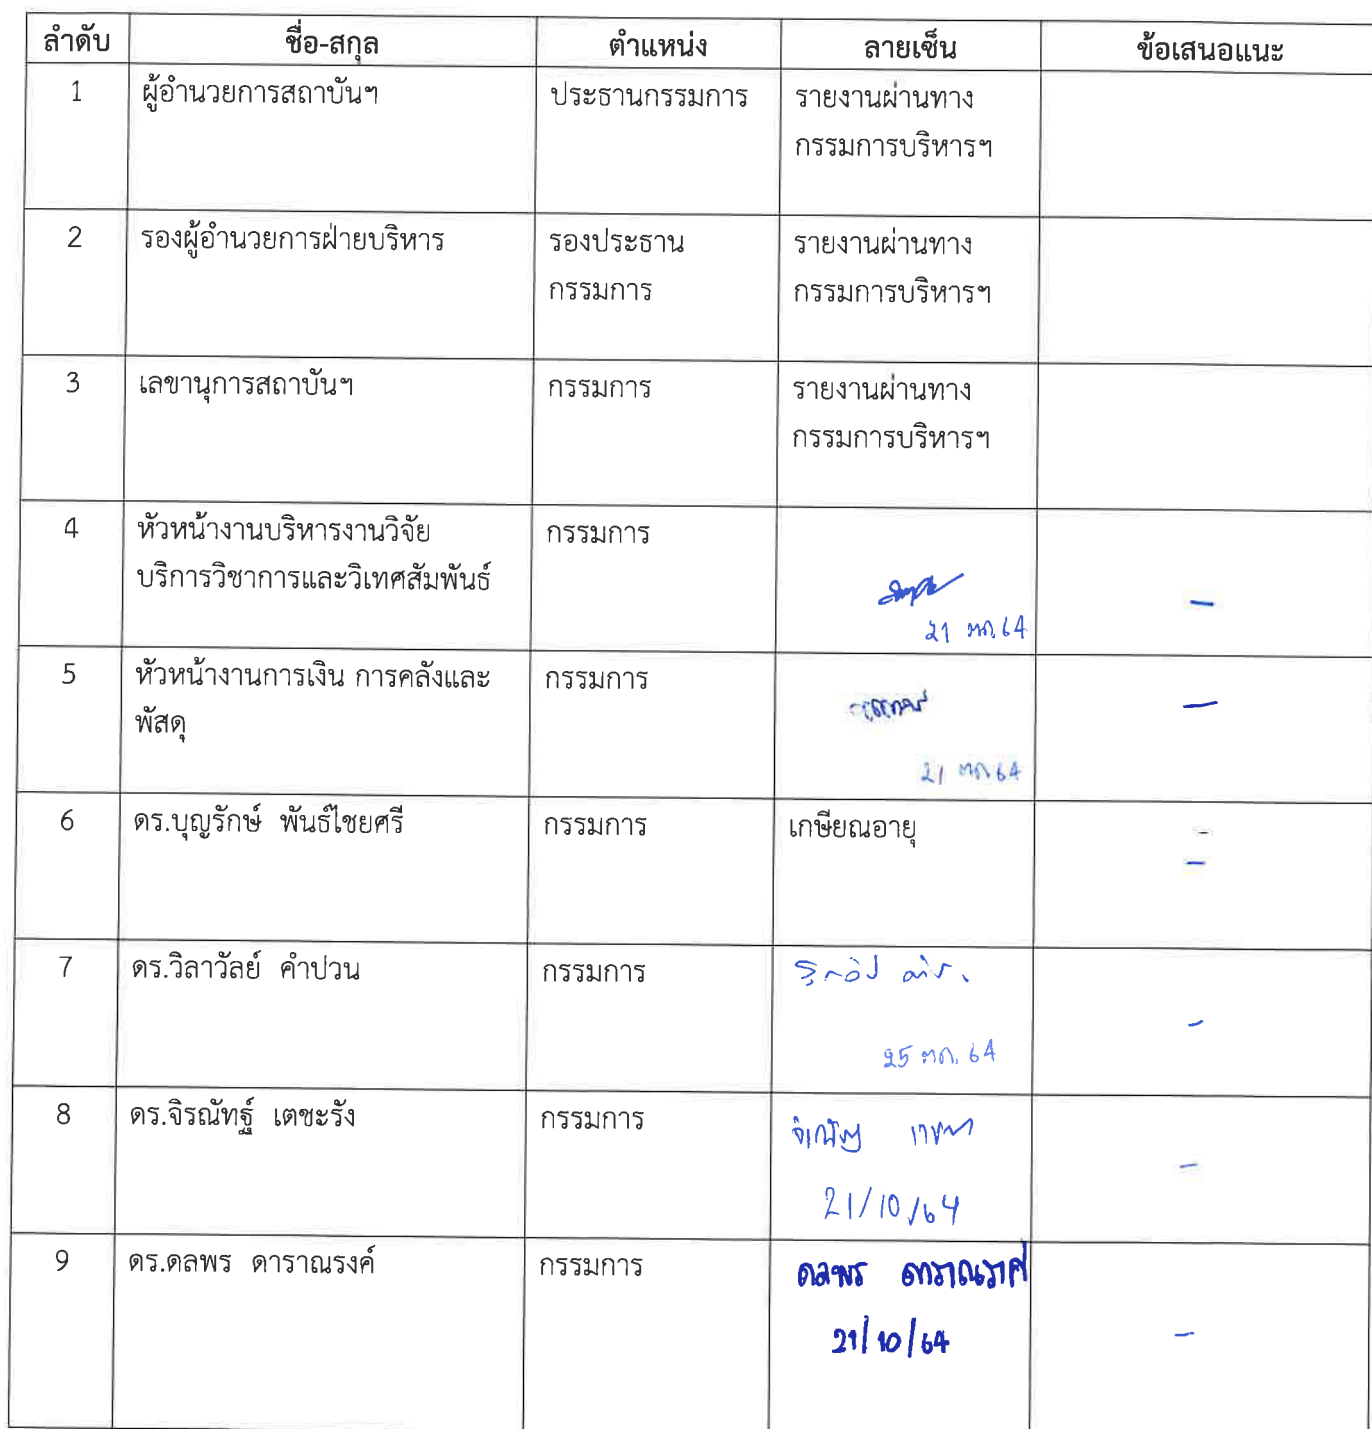 ลำดับ ชื่อ-สกุล ตำแหน่ง ลายเซ็น ข้อเสนอแนะ
1 ผู้อำนวยการสถาบันฯ ประธานกรรมการ รายงานผ่านทาง
กรรมการบริหารฯ
2 รองผู้อำนวยการฝ่ายบริหาร รองประธาน รายงานผ่านทาง
กรรมการ กรรมการบริหารฯ
3 เลขานุการสถาบันฯ กรรมการ รายงานผ่านทาง
กรรมการบริหารฯ
4 หัวหน้างานบริหารงานวิจัย กรรมการ
บริการวิชาการและวิเทศสัมพันธ์ -
21 ตค.64
5 หัวหน้างานการเงิน การคลังและ กรรมการ
พัสดุ -
21 ตค.64
6 ดร.บุญรักษ์ พันธ์ไชยศรี กรรมการ เกษียณอายุ -
-
7 ดร.วิลาวัลย์ คำปวน กรรมการ
25 ตค. 64 -
8 ดร.จิรณัทฐ์ เตชะรัง กรรมการ
21/10/64 -
9 ดร.ดลพร ดาราณรงค์ กรรมการ ดลพร ดาราณรงค์
21/10/64 -